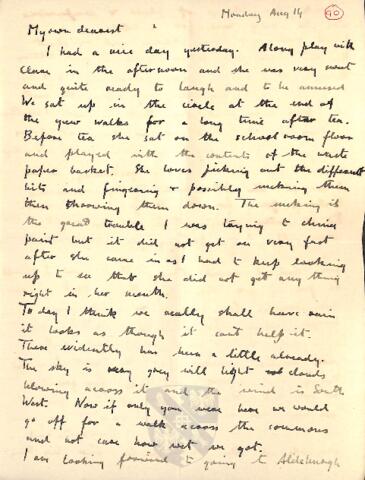 Monday Aug 14
90
My own dearest
I had a nice day yesterday. A long play with
Clare in the afternoon and she was very sweet
and quite ready to laugh and to be amused
We sat up in the circle at the end of
the yew walks for a long time after tea.
Before tea she sat on the schoolroom floor
and played with the contents of the waste
paper basket. She loves picking out the different
bits and fingering & possibly sucking them
then throwing them down. The sucking is
the great trouble I was trying to china
paint but it did not get on very fast
after she came in as I had to keep looking
up to see that she did not get any thing
right in her mouth.
Today I think we really shall have rain
it looks as though it can't help it.
There evidently has been a little already.
The sky is very grey with light clouds
blowing across it and the wind is South
West. Now if only you were here we would
go off for a walk across the commons
and not care how wet we got.
I am looking forward to going to Aldeburgh